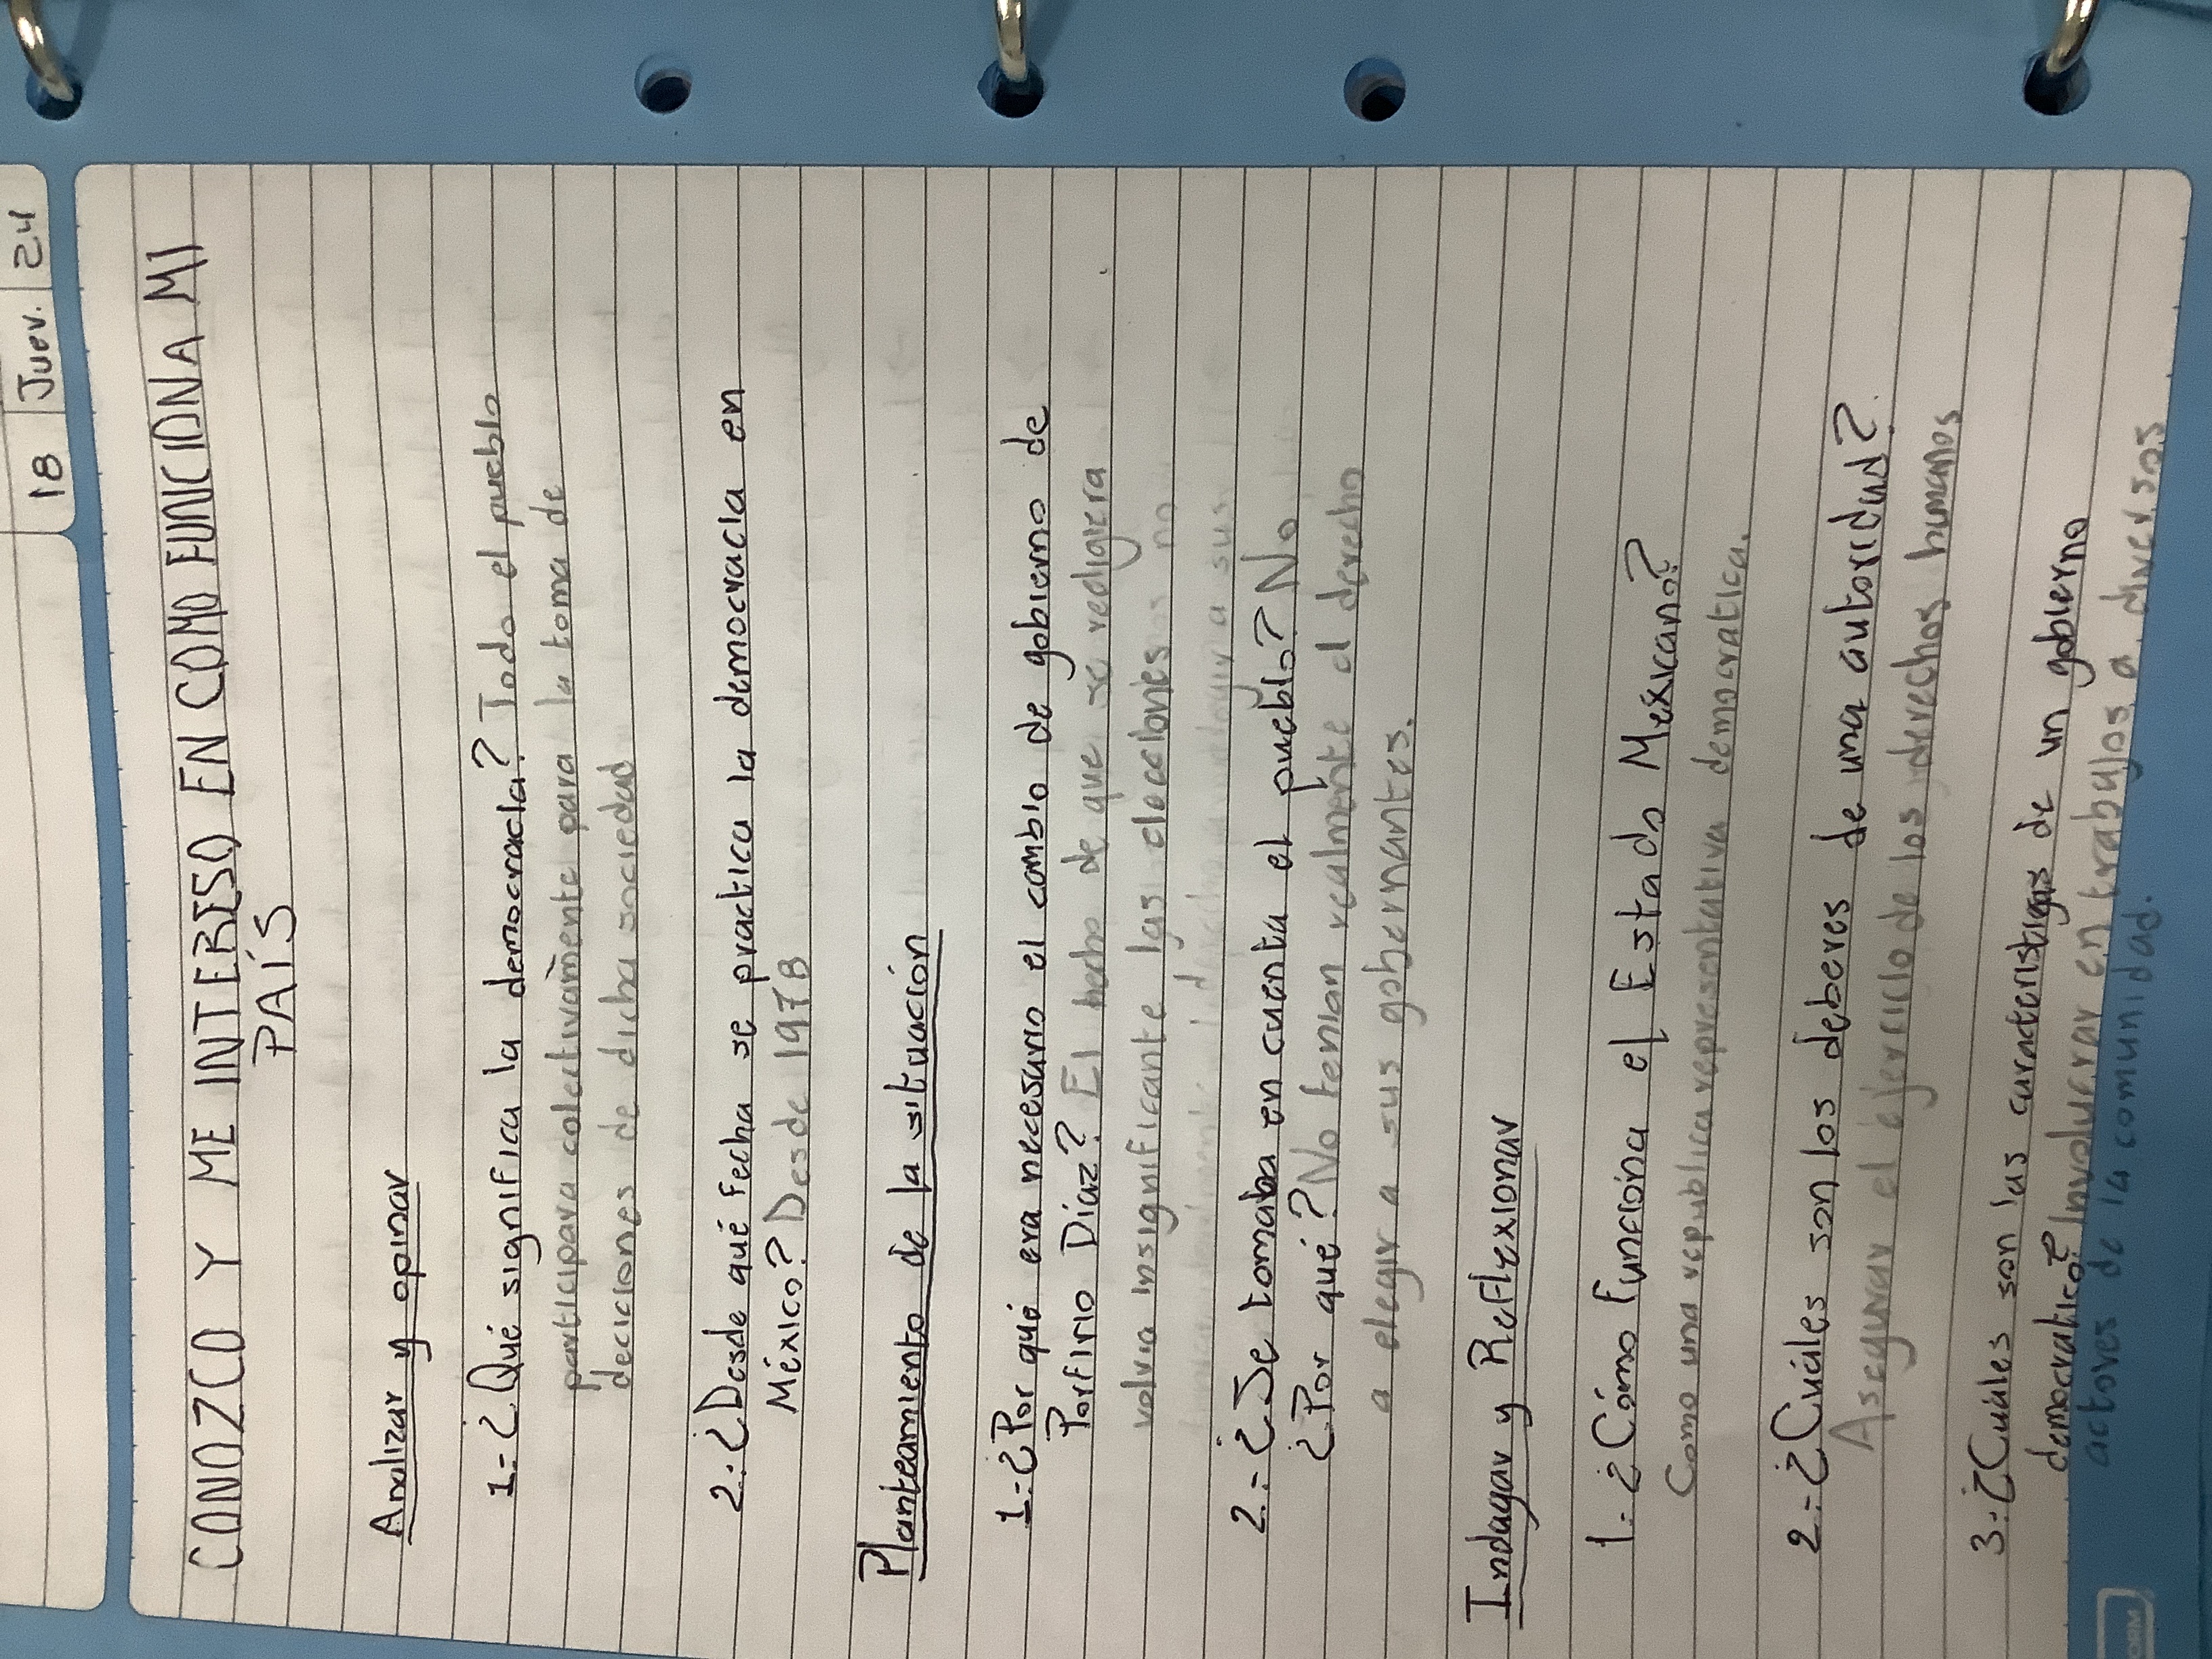 18 Juev. 24
CONOZCO Y ME INTERESO EN COMO FUNCIONA MI
PAÍS
Analizar y opinar
1.- ¿Qué significa la democracia? Todo el pueblo
participara colectivamente para la toma de
deciciones de dicha sociedad
2.- ¿Desde qué fecha se practica la democracia en
México? Desde 1978
Planteamiento de la situación
1.- ¿Por qué era necesario el combio de gobierno de
Porfirio Díaz? El hecho de que se reeligiera
volvia insignificante las elecciones
2.- ¿Se tomaba en cuenta el pueblo? No
¿Por qué? No tenian realmente el derecho
a elegir a sus gobernantes.
Indagar y Reflexionar
1.- ¿Cómo funciona el Estado Mexicano?
Como una republica representativa democratica.
2.- ¿Cuáles son los deberes de una autoridad?
Asegurar el ejercicio de los derechos humanos
3.- ¿Cuáles son las caracteristigas de un gobierno
democratico? Involucrar en trabajos a diversos
actores de la comunidad.